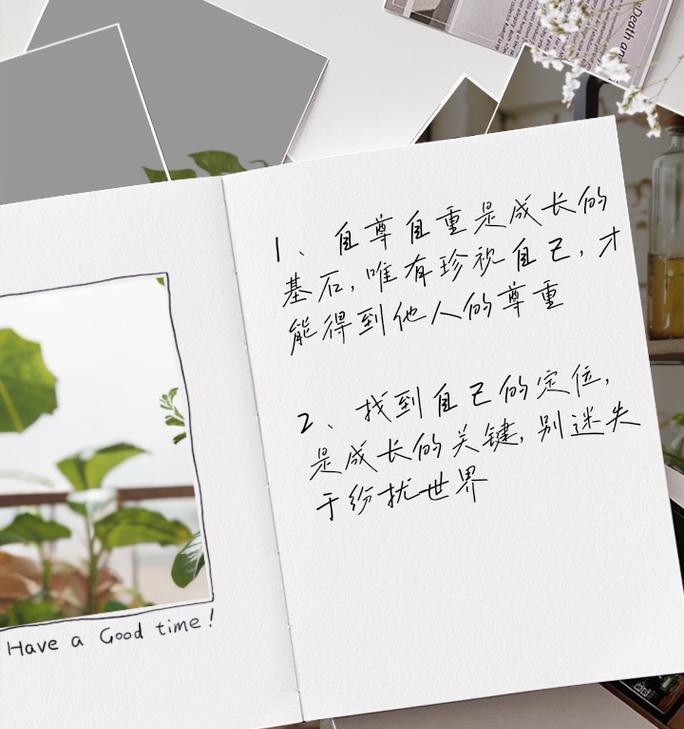 Death an
1、自尊自重是成长的
基石,唯有珍视自己,才
能得到他人的尊重
2、找到自己的定位,
是成长的关键,别迷失
于纷扰世界
Have a Good time!